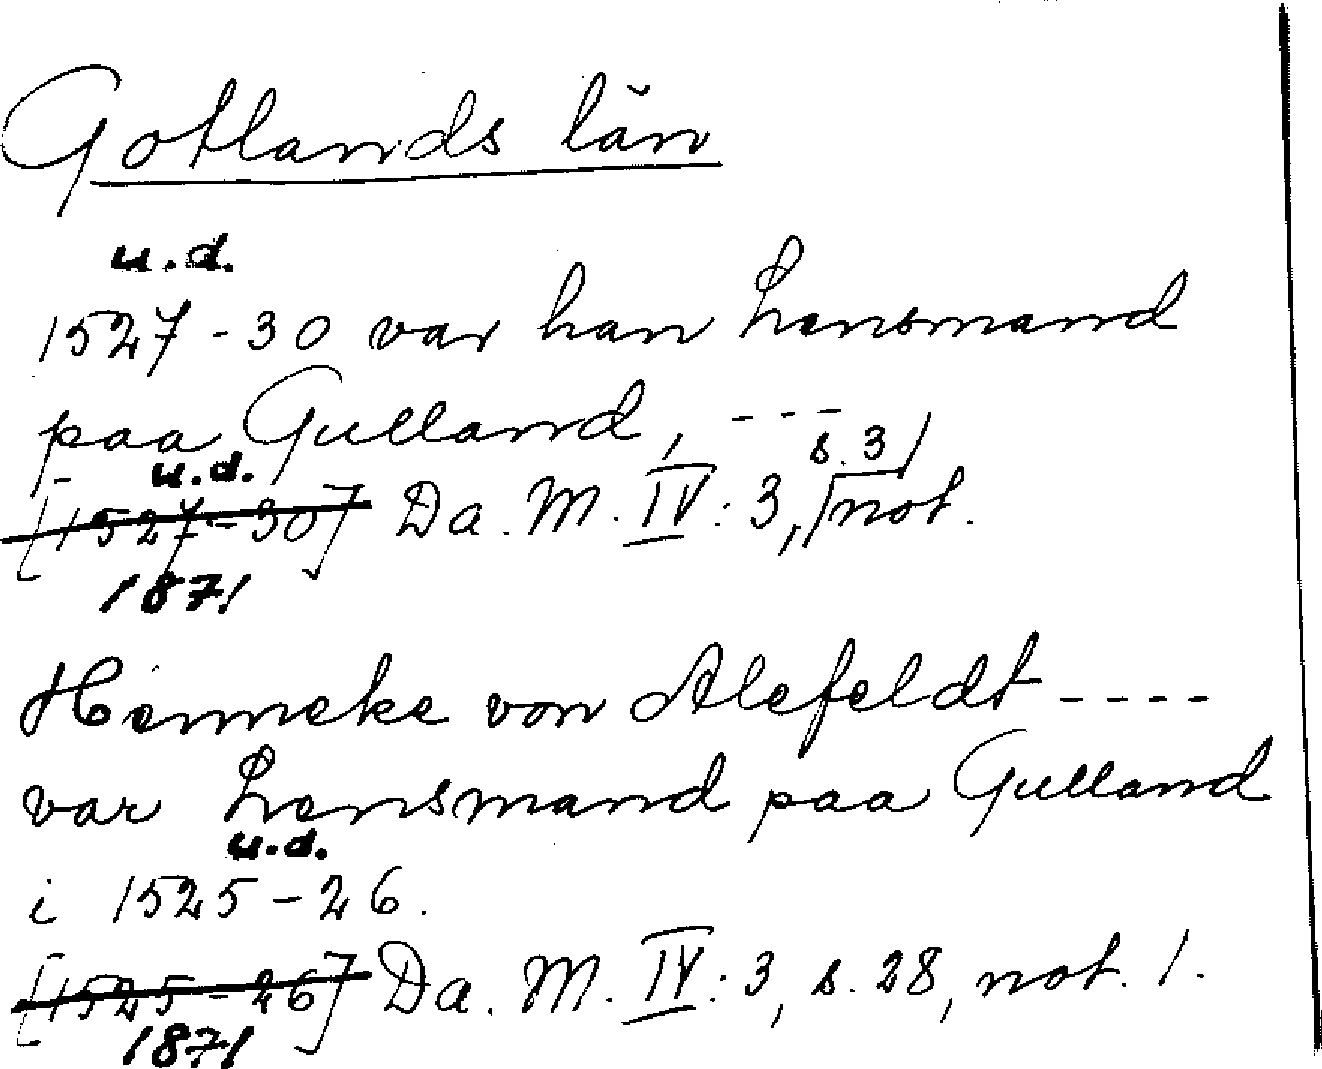 Gotlands län
u.d.
1527-30 var han Lensmand
paa Gulland, ---
s. 3/
u.d.
[1527-30] Da. M. IV: 3, not.
1871
Henneke von Alefeldt ----
var Lensmand paa Gulland
u.d.
i 1525-26.
[1525-26] Da. M. IV: 3, s. 28, not. 1.
1871